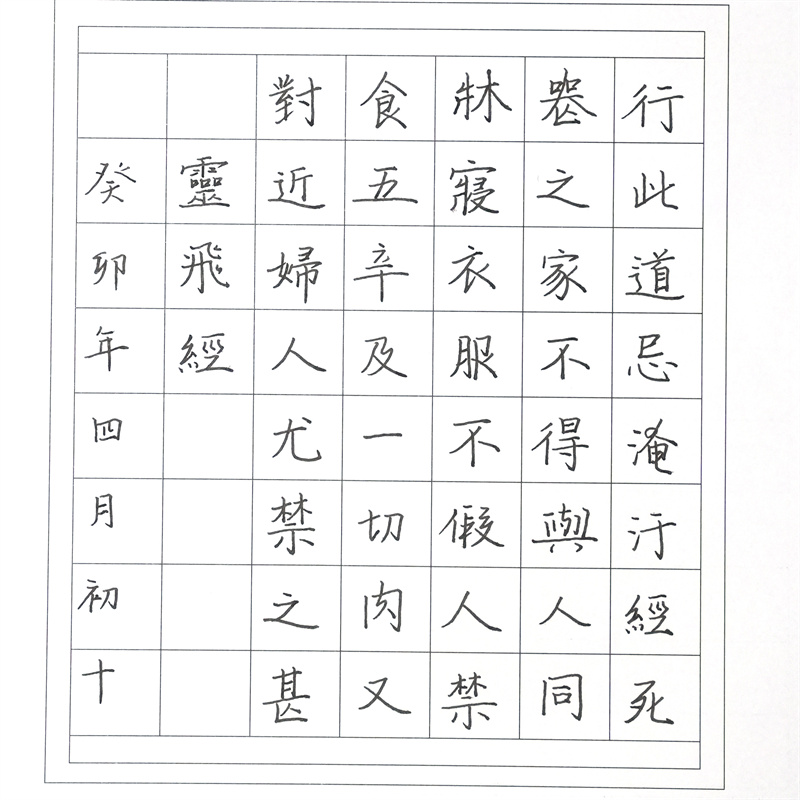 行此道忌淹汙經死
喪之家不得與人同
牀寢衣服不假人禁
食五辛及一切肉又
對近婦人尤禁之甚
靈飛經
癸卯年四月初十